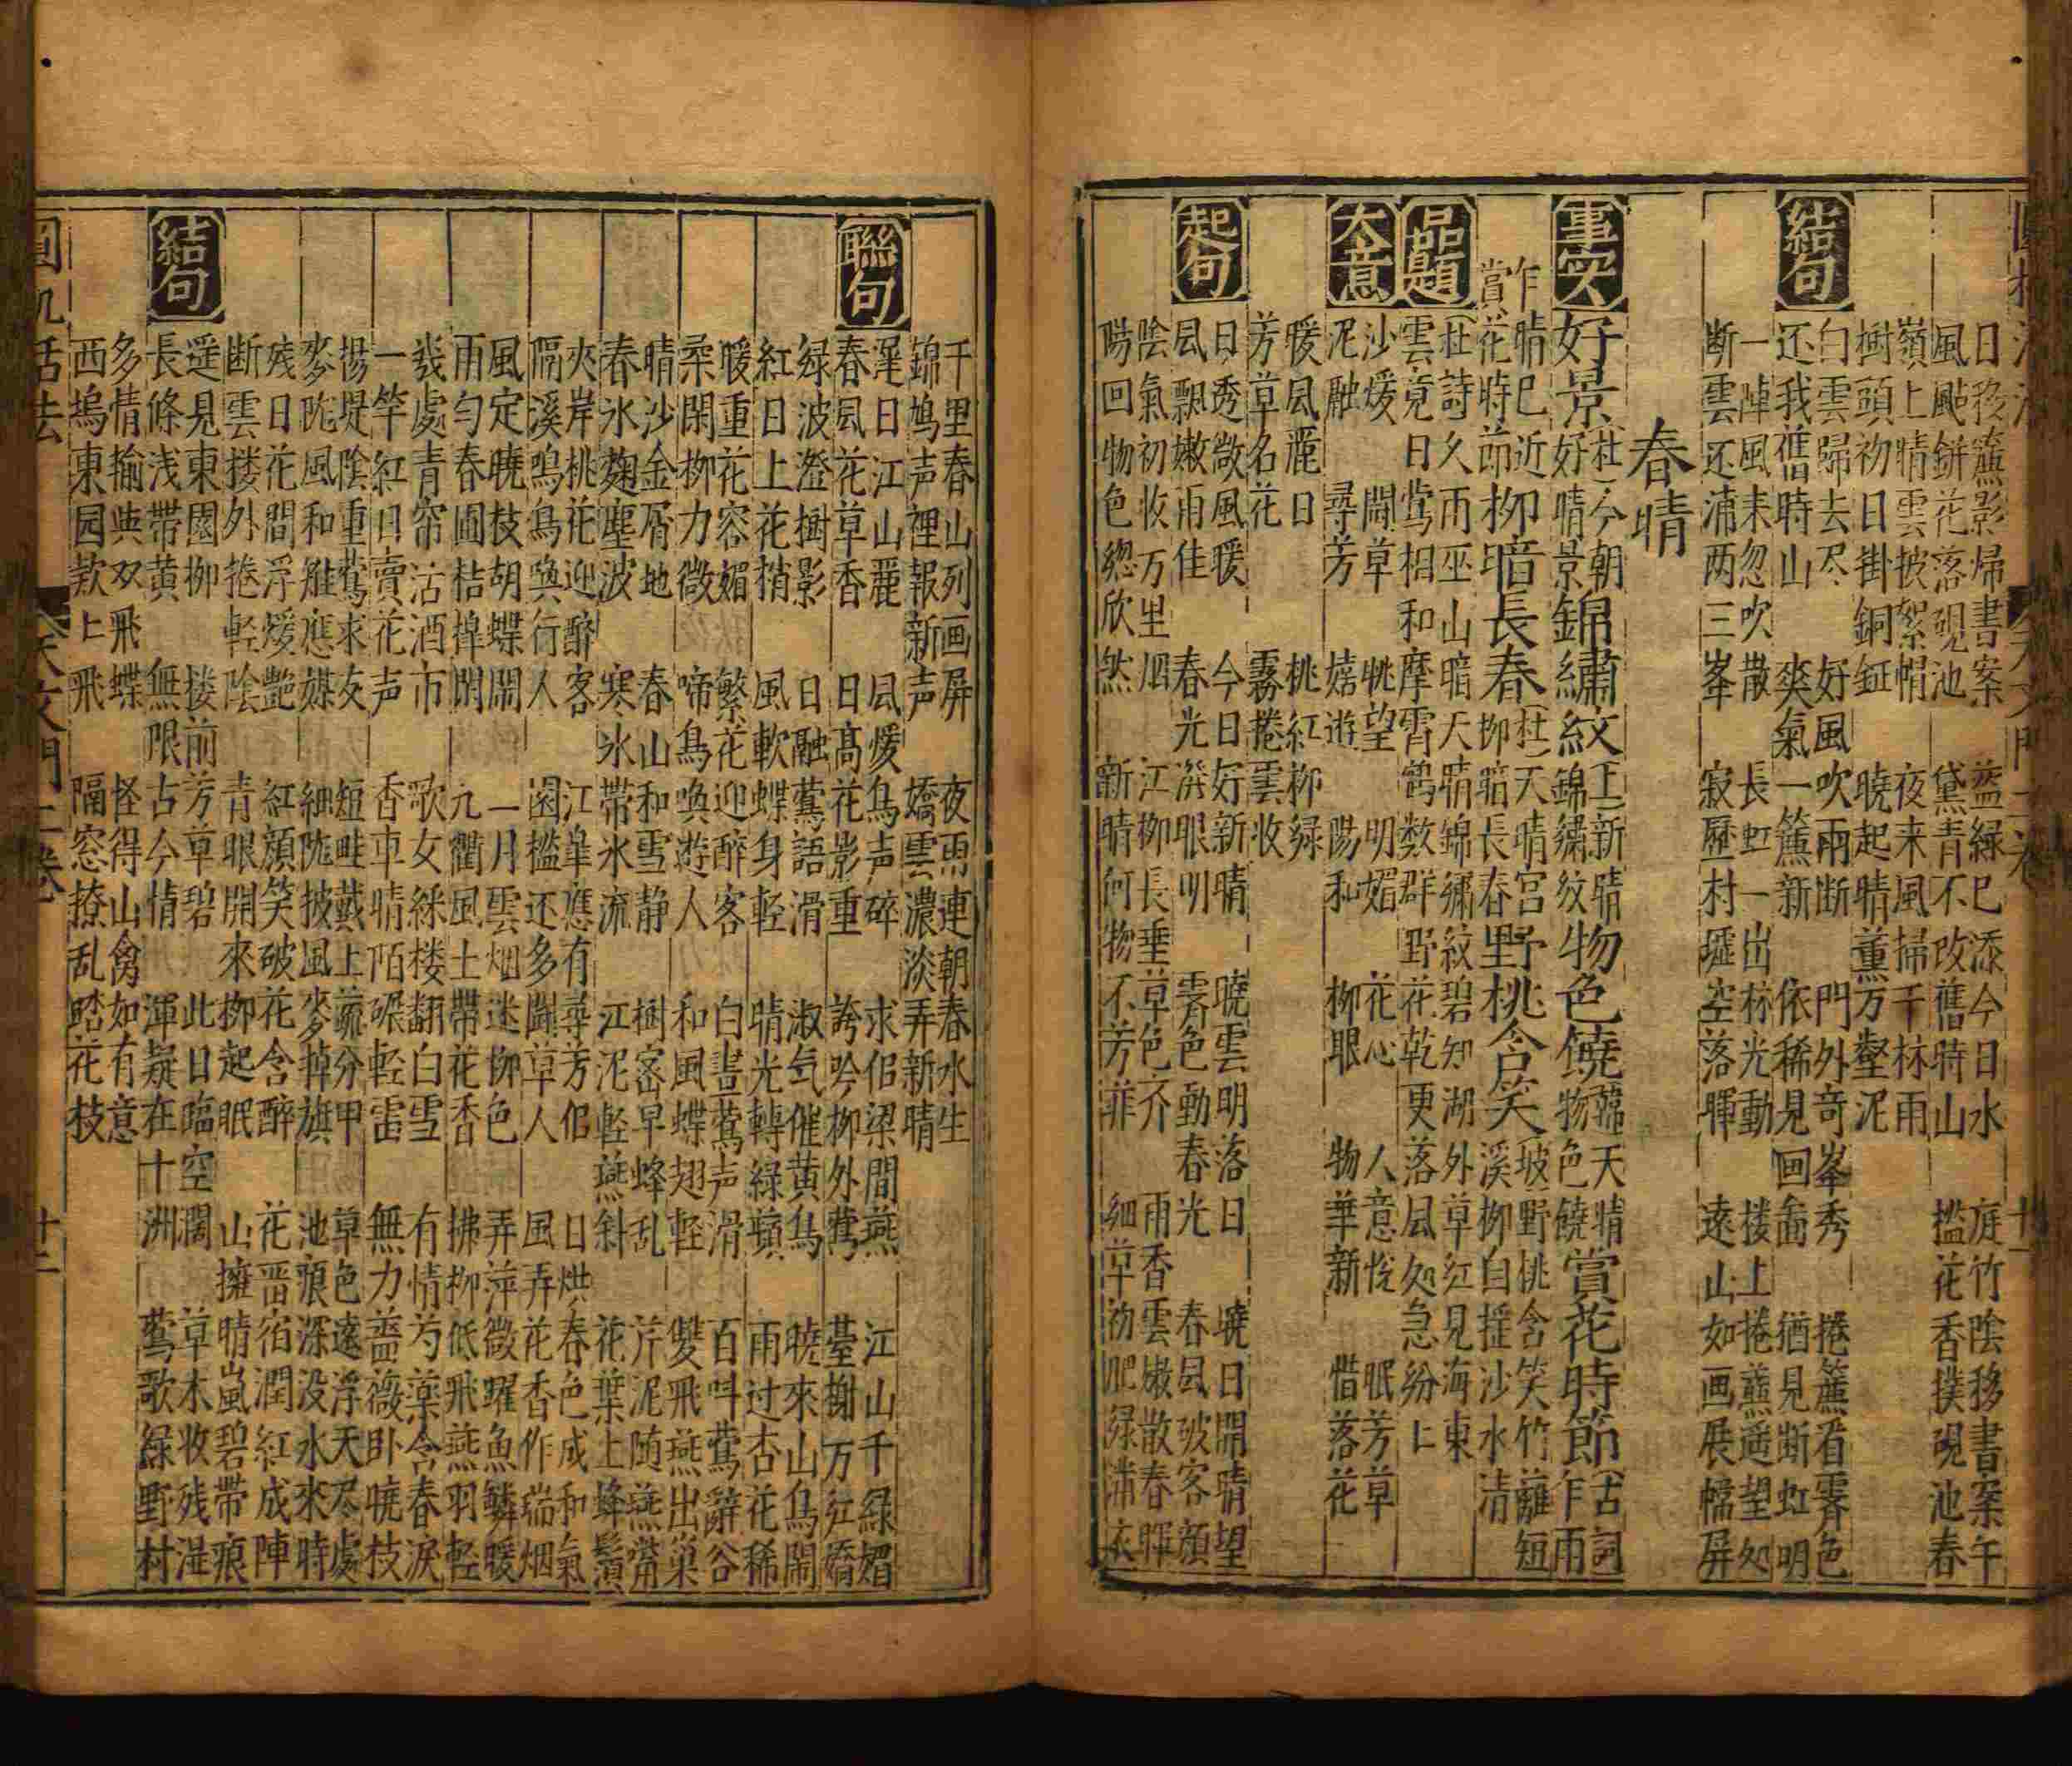 日移簾影帰書案 盆緑已添今日水 庭竹陰移書案午
風颭餅花落硯池 黛青不改舊時山 檻花香撲硯池春
嶺上晴雲披絮帽 夜来風掃千林雨
樹頭初日掛銅鉦 曉起晴薫万壑泥
結句
白雲歸去尽 好風吹雨断 門外奇峯秀 捲簾看霽色
还我舊時山 爽氣一簾新 依稀見画啚 猶見断虹明
一陣風来忽吹散 長虹一出林光動 楼上捲簾遥望処
断雲还浦两三峯 寂歷村墟空落暉 遠山如画展幈屏
春晴
事实
好景 杜今朝好晴景 錦繡紋 上新晴錦繡紋 物色饒 韓天晴物色饒 賞花時節 古詞乍雨
乍晴巳近賞花時節 柳暗長春 杜天晴宫柳暗長春 野桃含笑 坡野桃含笑竹籬短溪柳自揺沙水清
品題
杜詩久雨巫山暗天晴錦繡紋碧知湖外草紅見海東
雲竟日鶯相和摩霄鶴数群野花乾更落風処急紛上
大意
沙煖 閙草 眺望 明媚 花心 人意悅 眠芳草
泥融 尋芳 嬉遊 陽和 柳眼 物華新 惜落花
暖風麗日 桃紅柳緑
芳草名花 霧捲雲收
起句
日透敞風暖 今日好新晴 曉雲明落日 曉日開晴望
風飄嫩雨佳 春光滿眼明 霽色動春光 春風破客顔
陰氣初收万里烟 江柳長垂草色齐 雨香雲嫩散春暉
陽回物色緫欣然 新晴何物不芳菲 細草初肥緑滿衣
千里春山列画屏 夜雨連朝春水生
錦鳩声裡報新声 嬌雲濃淡弄新晴
聯句
遲日江山麗 風煖鳥声碎 求侣梁間燕 江山千緑媚
春風花草香 日髙花影重 誇吟柳外鶯 臺榭万紅嬌
緑波澄樹影 日融鶯語滑 淑气催黄鳥 曉來山鳥閙
紅日上花梢 風軟蝶身輕 晴光轉緑蘋 雨过杏花稀
暖重花容媚 繁花迎醉客 白晝鶯声滑 百叫鶯辭谷
柔閑柳力微 啼鳥喚遊人 和風蝶翅輕 雙飛燕出巢
晴沙金屑地 春山和雪静 樹宻早蜂乱 芹泥随燕觜
春氷麴塵波 寒氷帶氷流 江泥軽燕斜 花葉上蜂鬚
夾岸桃花迎醉客 江皐應有尋芳侣 日烘春色成和氣
隔溪鳴鳥喚行人 園檻还多鬬草人 風弄花香作瑞烟
風定曉枝胡蝶閙 一月雲烟迷柳色 弄萍微躍魚鱗暖
雨匀春圃桔槹閑 九衢風土帶花香 拂柳低飛燕羽軽
幾處青帘沽酒市 歌女綵楼翻白雪 有情芍薬含春涙
一竿紅日賣花声 香車晴陌碾輕雷 無力蔷薇卧曉枝
揚堤陰重鶯求友 短畦戴上蔬分甲 草色遠浮天尽處
麥陇風和雉應媒 細陇披風麥掉旗 池痕深没水來時
残日花間浮煖艶 紅顔笑破花含醉 花畱宿潤紅成陣
断雲楼外捲輕陰 青眼開來柳起眠 山擁晴嵐碧帶痕
結句
遥見東園柳 楼前芳草碧 此日臨空濶 草木收残湿
長條浅帶黄 無限古今情 渾疑在十洲 鶯歌緑野村
多情揄與双飛蝶 怪得山禽如有意
西塢東园欵上飛 隔窓撩乱踏花枝
圓机活法
天文門一卷
十二